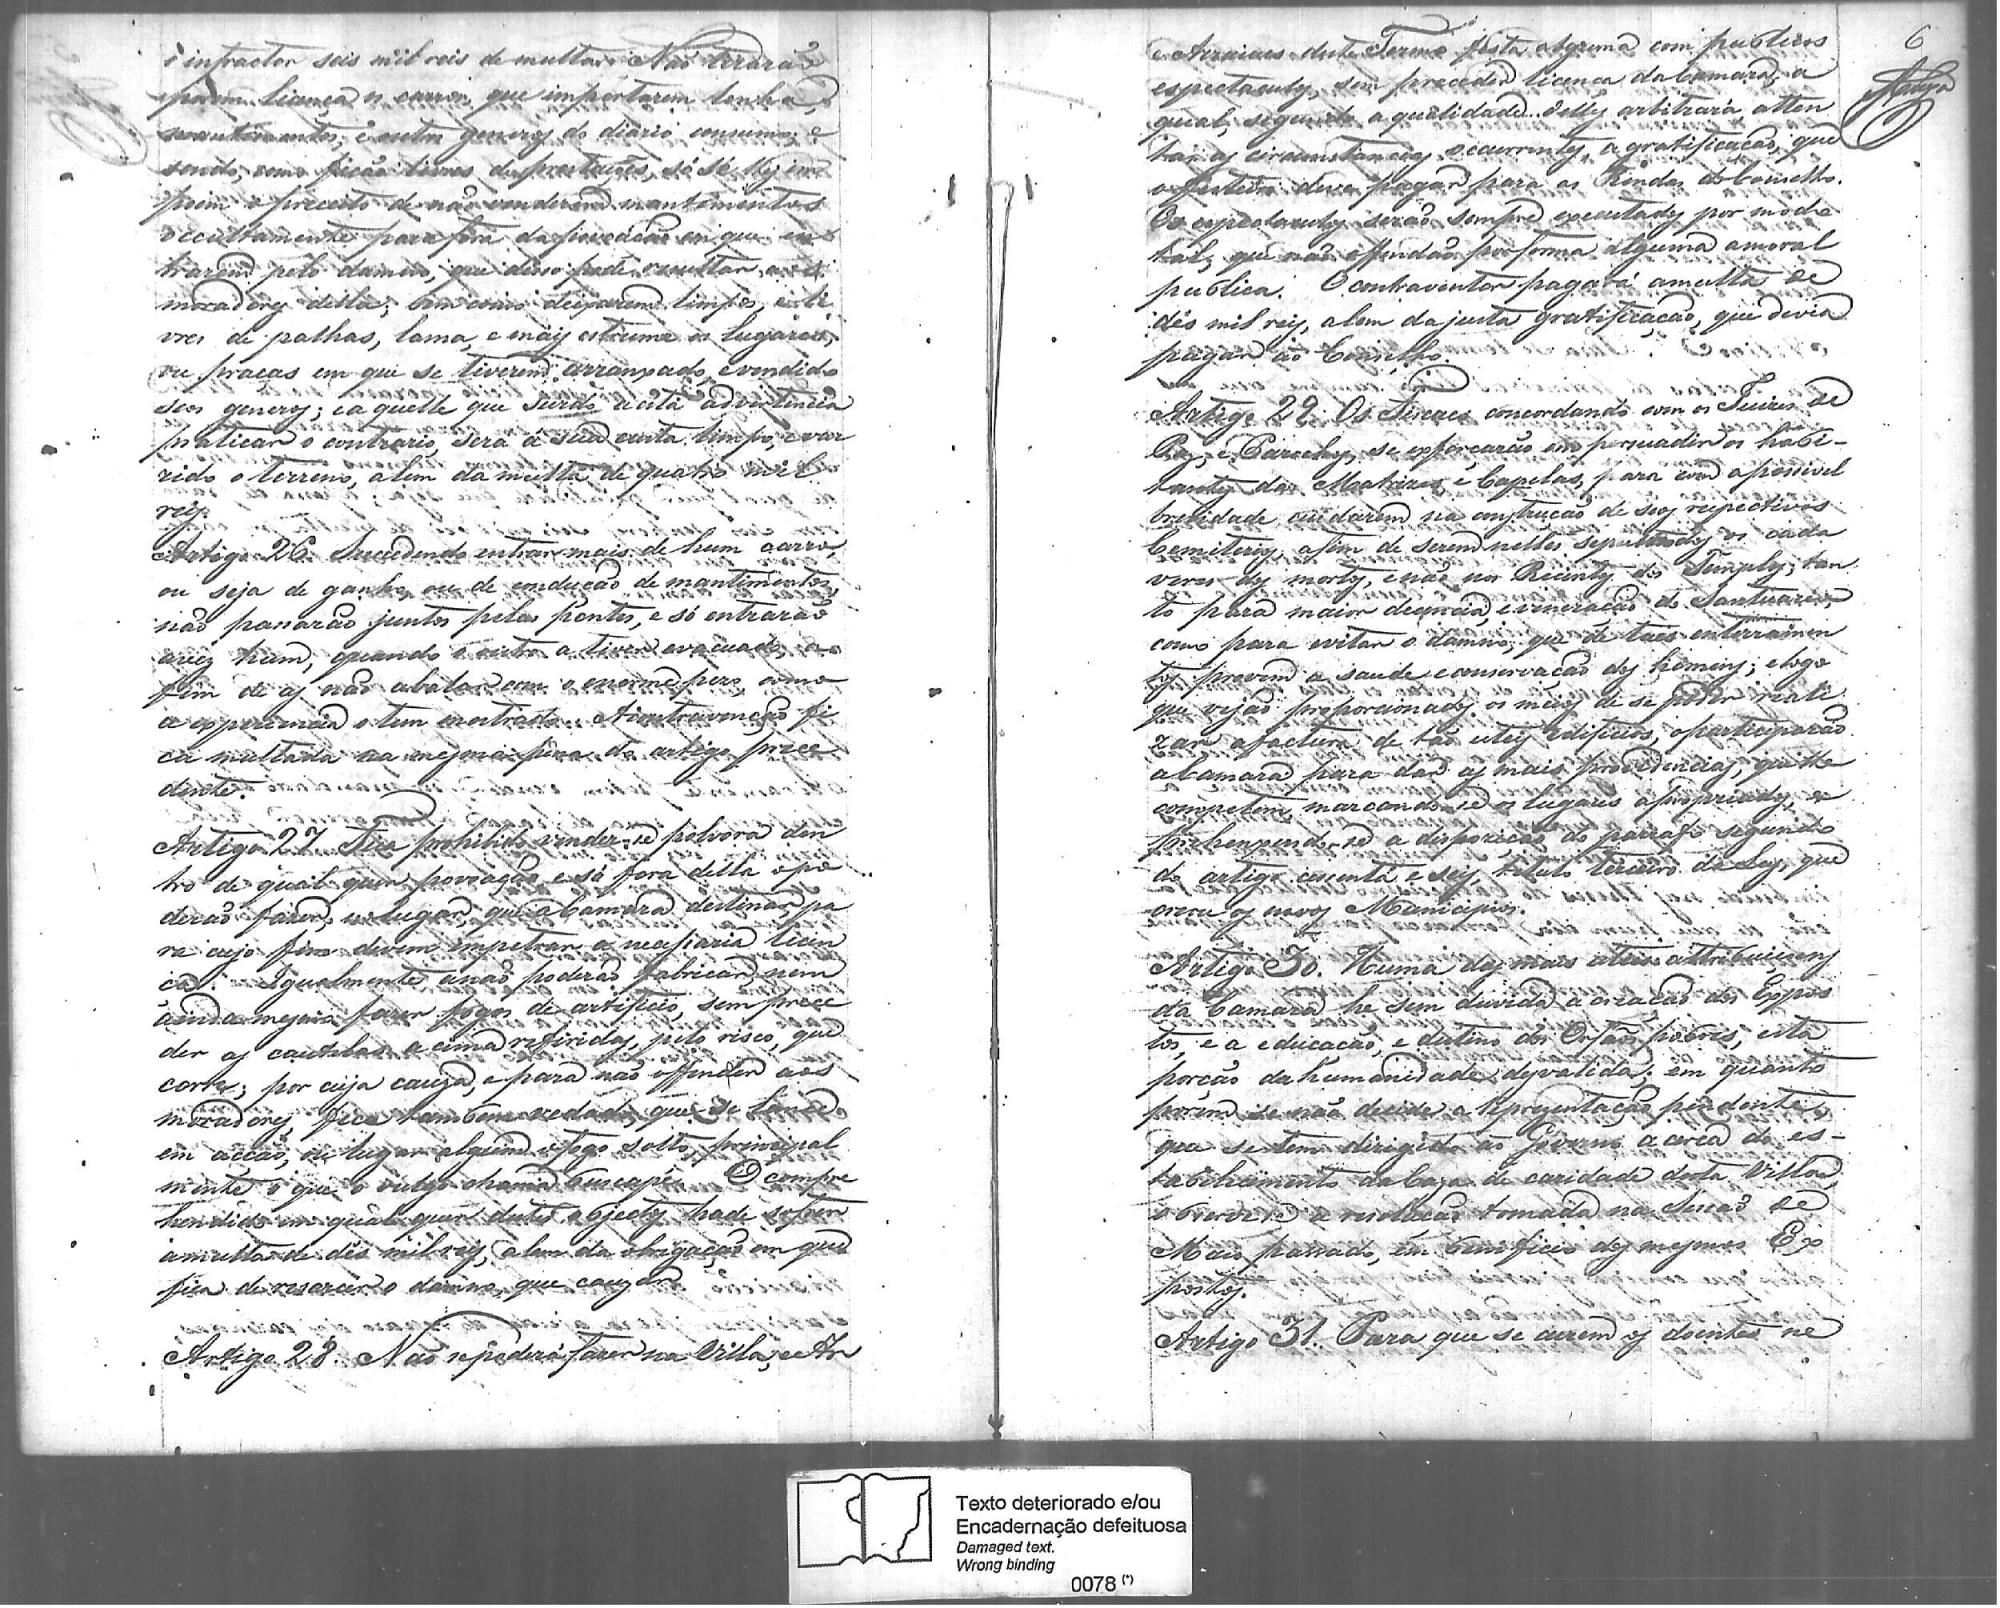 o infractor seis mil reis de multa. Não tirarão
porem licença os carros, que importarem lenha,
mantimentos, e outros generos do diario consumo; e
sendo, como ficão livres de prestações, só se lhes im
poem o preceito de não venderem mantimentos
occultamente para fóra da povoação em que en
trarem pelo damno, que disso pode resultar aos
moradores della; bem como deixarem limpos, e li
vres de palhas, lama, e mais estrume os lugares,
ou praças em que se tiverem arranxado, e vendido
seos generos; e aquelle que surdo a esta advertencia
praticar o contrario, será á sua custa limpo, e var
rido o terreno, alem da multa de quatro mil
reis.
Artigo 26. Succedendo entrar mais de hum carro,
ou seja de ganho, ou de condução de mantimentos,
não passarão juntos pelas pontes, e só entrará
cada hum, quando o outro a tiver evacuado, a
fim de as não abater com o enorme peso, como
a experiencia o tem mostrado. A contravenção fi
ca multada na mesma pena do artigo prece
dente.
Artigo 27. Fica prohibido vender-se polvora den
tro de qual quer povoação, e só fora della o po
derão fazer, no lugar, que a Camara destinar, pa
ra cujo fim devem impetrar a necessaria licen
ça. Igualmente não poderão fabricar, nem
ainda mesmo fazer fogos de artificio, sem prece
der as cautelas acima referidas, pelo risco, que
corre; por cuja cauza, e para não offender aos
moradores, fica tambem vedado que se lance
em acção, ou lugar algum o fogo solto, principal
mente o que o vulgo chama buscapés. O compre
hendido em qual quer destes objectos hade sofrer
a multa de dés mil reis, alem da obrigação em que
fica de resarcir o damno, que cauzar.
Artigo 28. Não se poderá fazer na Villa, e Ar
6
e Arraiaes deste Termo festa alguma com publicos
espectaculos, sem preceder licença da Camara, a
qual, segundo a qualidade delles arbitrará atten
tas as circumstancias occurrentes, a gratificação, que
o festeiro deva pagar para as Rendas do Conselho.
Os espectaculos serão sempre executados por modo
tal, que não offendão por forma alguma a moral
publica. O contraventor pagará a multa de
dés mil reis, alem da justa gratificação, que devia
pagar ao Conselho.
Artigo 29. Os Fiscaes concordando com os Juizes de
Paz, e Parochos, se esforçarão em persuadir os habi-
tantes das Matrizes, e Capelas, para com a possivel
brevidade cuidarem na construção de seos respectivos
Cemiterios, afim de serem nelles sepultados os cada
veres dos mortos, e não nos Recintos dos Templos; tan
to para maior decencia, e veneração do Santuario,
como para evitar o damno que de taes enterramen
tos provem a saude e conservação dos homens; e logo
que vejão proporcionados os meios de se poder reali
zar a factura de tão uteis edificios, o participarão
a Camara para dar as mais providencias, que lhe
competem, marcando-se os lugares apropriados, e
prehenxendo-se a disposição do parrafo segundo
do artigo cecenta e seis titulo terceiro da Ley, que
creou os novos Municipios.
Artigo 30. Huma das mais uteis attribuiçoens
da Camara he sem duvida a criação dos Expos
tos, e a educação, e destino dos Orfãos pobres, esta
porção da humanidade desvalida; em quanto
porem se não decide a representação pendente,
que se tem dirigido ao Governo acerca do es-
tabelicimento da Caza de caridade desta Villa,
observe-se a resolução tomada na Sessão de
Maio passado, em beneficio dos mesmos Ex
postos.
Artigo 31. Para que se curem os doentes ne
Texto deteriorado e/ou
Encadernação defeituosa
Damaged text.
Wrong binding
0078 (*)